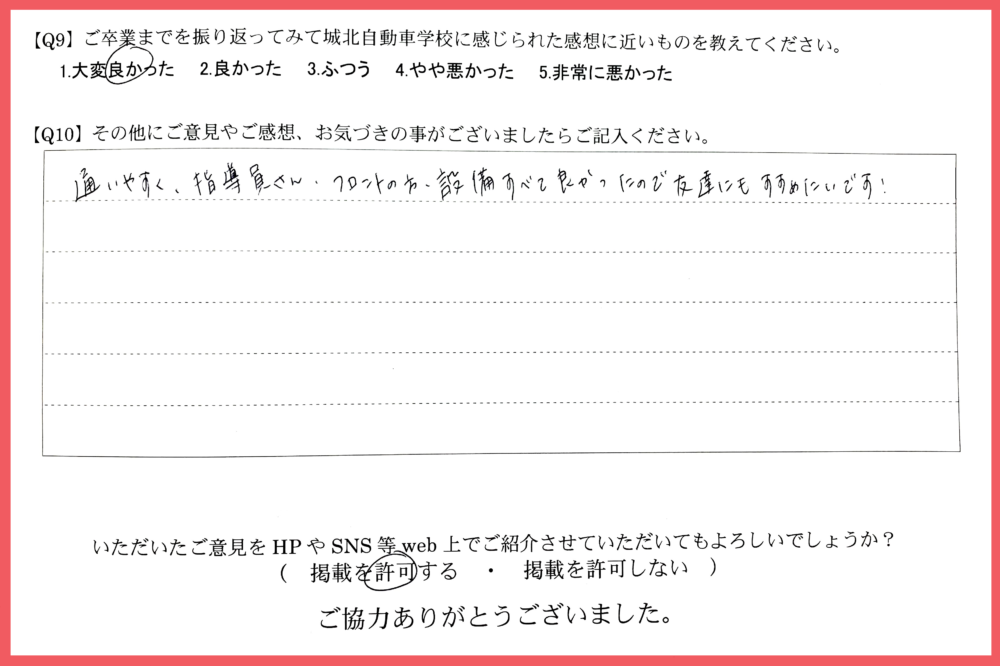 【Q9】ご卒業までを振り返ってみて城北自動車学校に感じられた感想に近いものを教えてください。
1.大変良かった 2.良かった 3.ふつう 4.やや悪かった 5.非常に悪かった
【Q10】その他にご意見やご感想、お気づきの事がございましたらご記入ください。
通いやすく、指導員さん、フロントの方、設備すべて良かったので友達にもすすめたいです！
いただいたご意見をHPやSNS等web上でご紹介させていただいてもよろしいでしょうか？
（ 掲載を許可する ・ 掲載を許可しない ）
ご協力ありがとうございました。